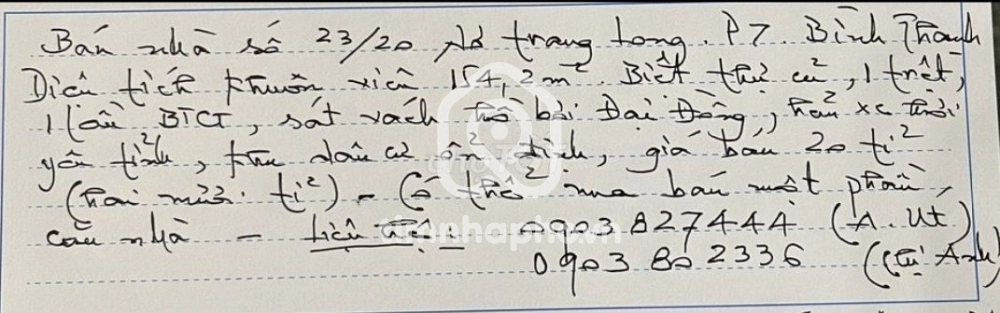 Bán nhà số 23/20 Nơ trang Long. P7 Bình Thạnh
Diện tích khuôn viên 154,2m². Biệt thự cũ, 1 trệt,
1 lầu BTCT, sát vách hồ bơi Đại Đồng, hẻm xe hơi
yên tĩnh, khu dân cư ổn định, giá bán 20 tỉ
(hai mươi tỉ) - Có thể mua bán một phần
căn nhà - Liên hệ: 0903 827444 (A. Út)
0903 802336 (Chị Anh)
timnhapho.vn